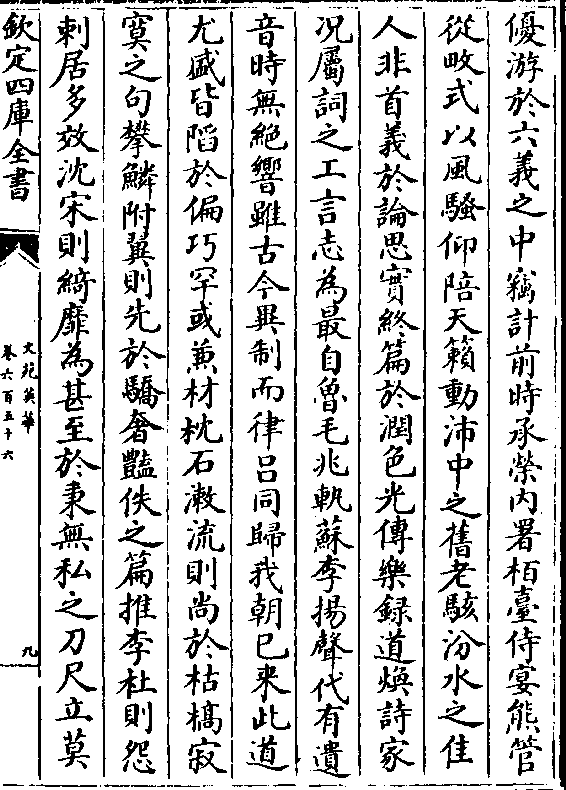 優游於六義之中竊計前時承榮内署栢臺侍宴熊管
從畋式以風騷仰陪天籟動沛中之舊老駭汾水之佳
人非首義於論思實終篇於潤色光傳樂録道煥詩家
况屬詞之工言志為最自魯毛兆軌蘇李揚聲代有遺
音時無絶響雖古今異制而律吕同歸我朝已来此道
尤盛皆䧟於偏巧罕或兼材枕石漱流則尚於枯槁寂
寞之句攀鱗附翼則先於驕奢豔佚之篇推李杜則怨
刺居多效沈宋則綺靡為甚至於秉無私之刀尺立莫
欽定四庫全書
文苑英華
卷六百五十六
九